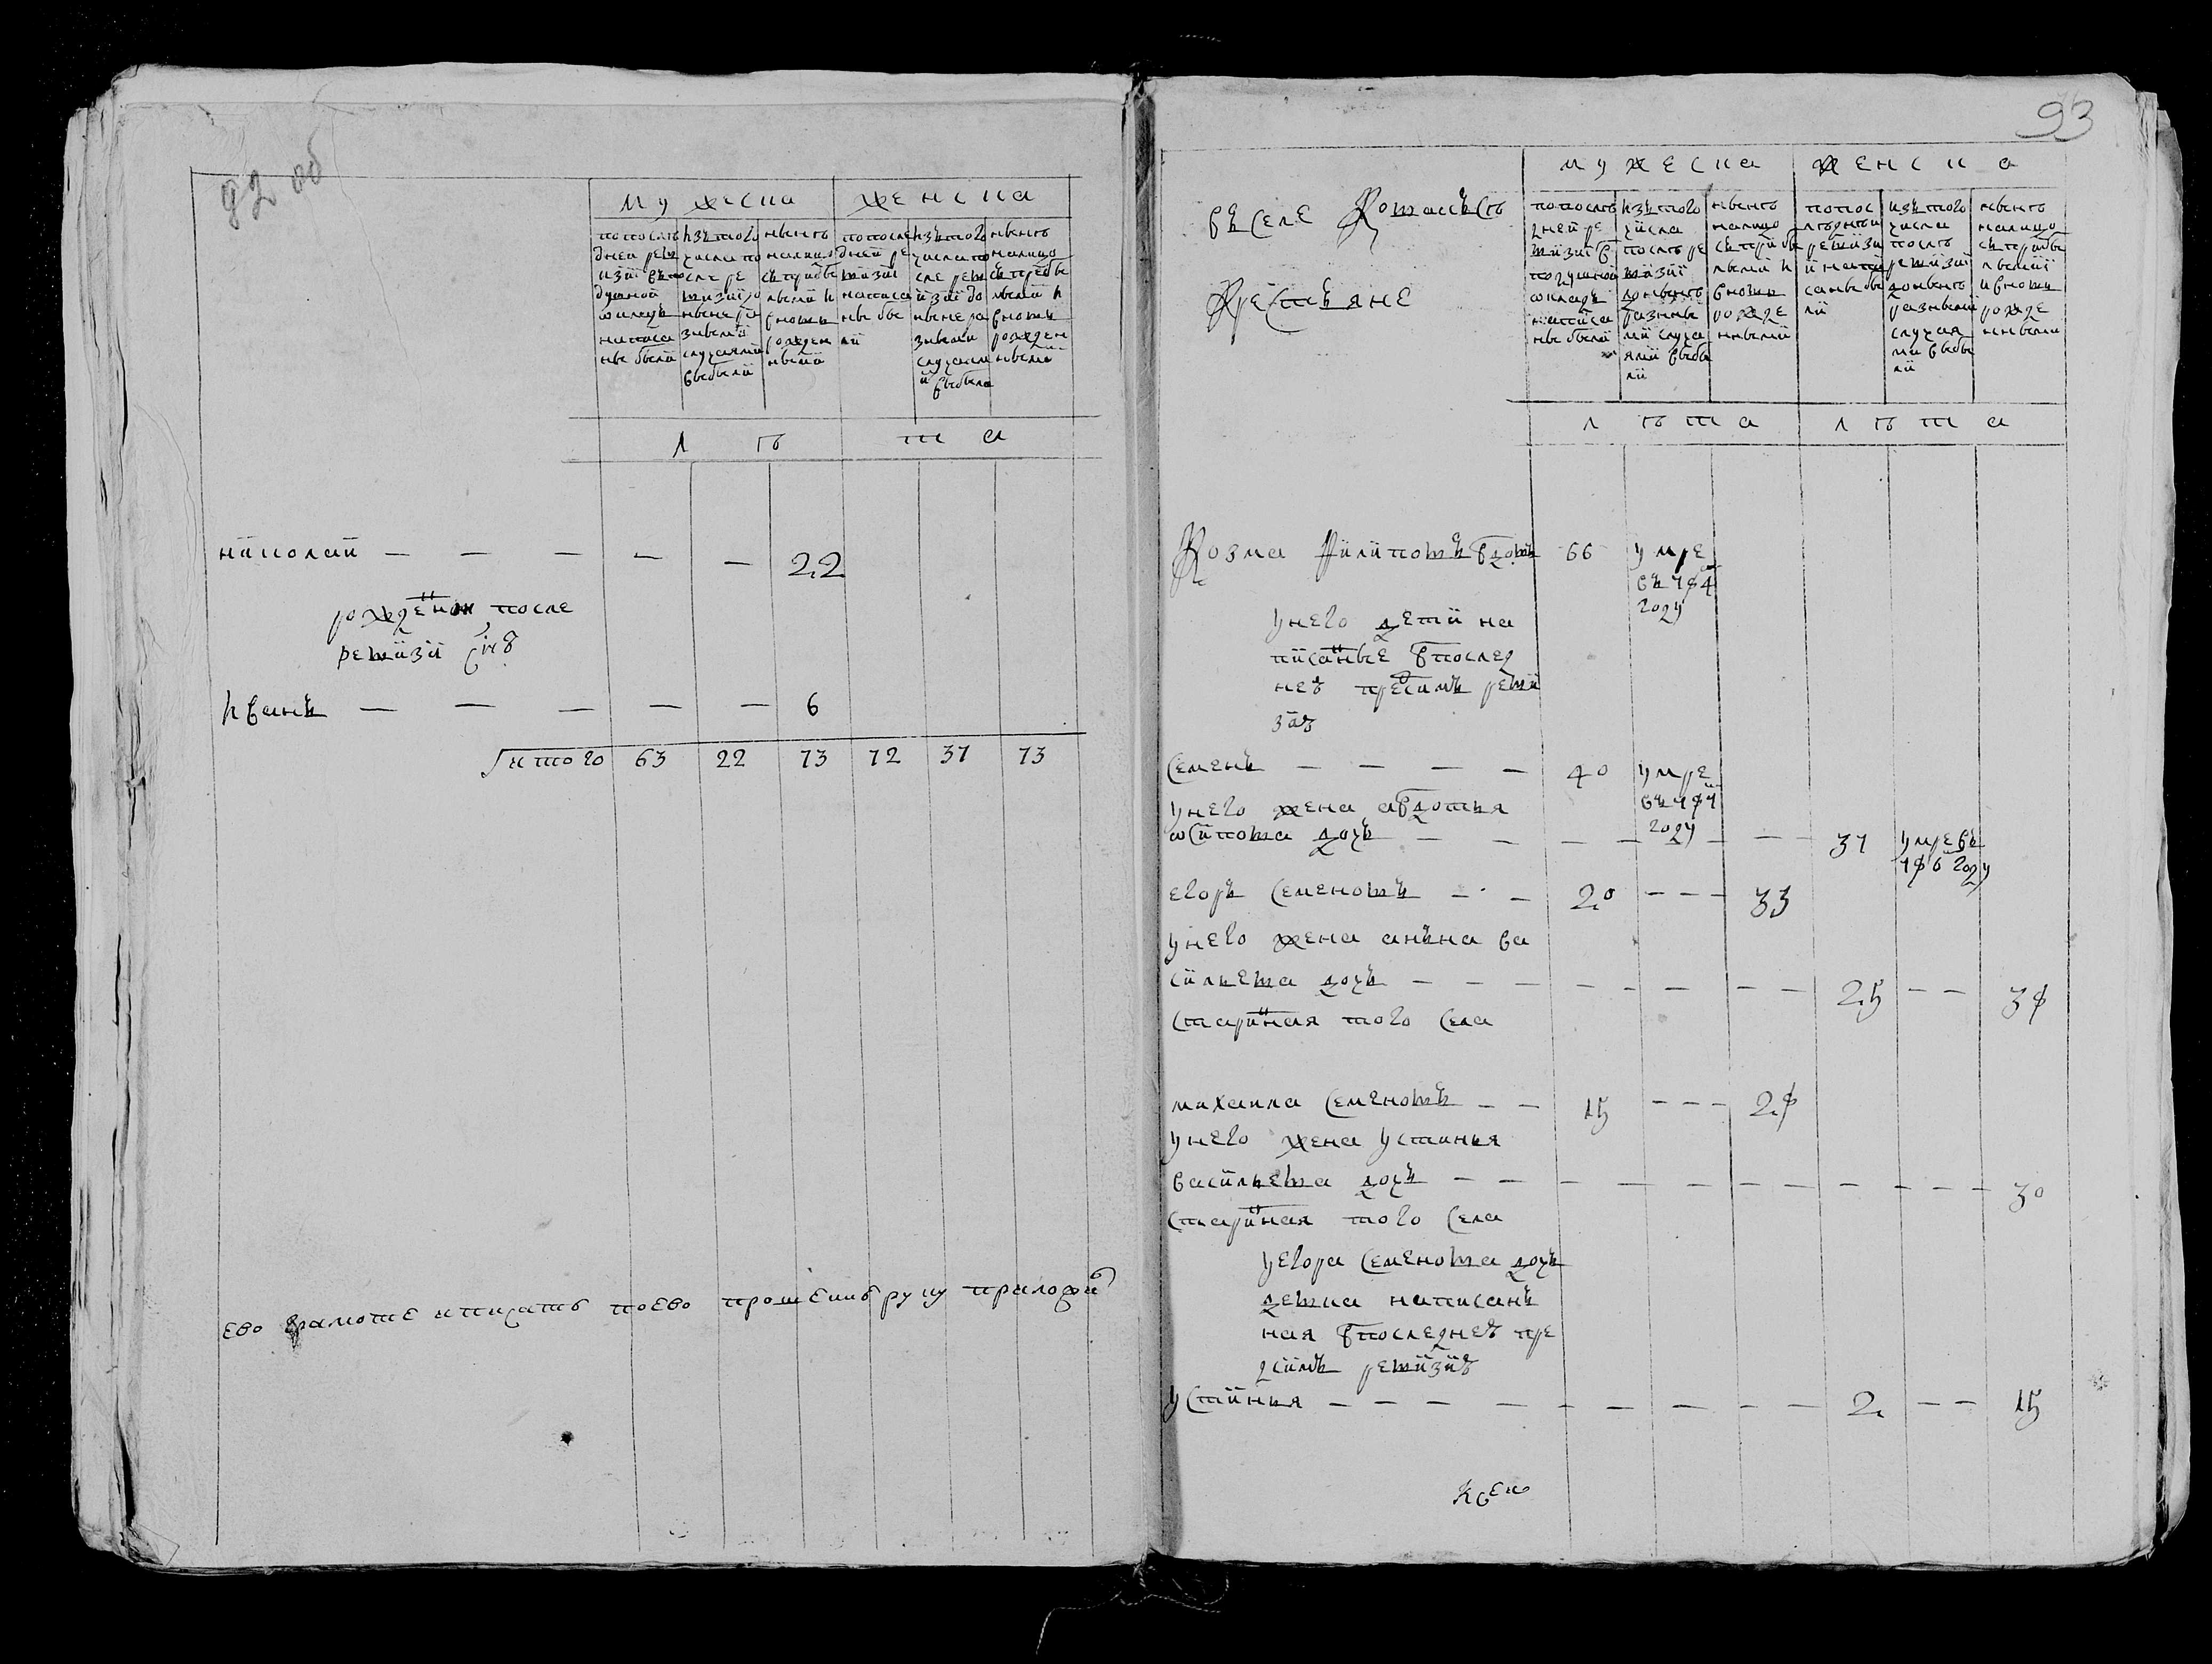 92 об
мужеска женска
по после
дней рев
изіи въ по
душной
окладъ
написа
ны были
изъ того
числа по
сле ре
визіи до
ныне ра
зными
случаями
выбыли
ныне
налицо
съ прибы
лыми и
вновь
рожден
ными
по после
дней ре
визіи
написа
ны бы
ли
изъ того
числа по
сле рев
изіи до
ныне ра
зными
случаям
и выбыли
ныне
налицо
съ прибы
лыми и
вновь
рожден
ными
лета
николай — — — — — 22
рожденной после
ревизіи сын
иванъ — — — — — 6
итого 63 22 73 72 31 73
ево грамоте и писать по ево прошению руку приложил
93
въ селе
крестьяне
мужеска женска
по после
дней ре
визіи в
подушной
окладъ
написа
ны были
изъ того
числа
после ре
визіи
до ныне
разны
ми случа
ями выбы
ли
ныне
налицо
съ прибы
лыми и
вновь
рожде
нными
по пос
ледней
ревизи
и напи
саны бы
ли
изъ того
числа
после
ревизіи
до ныне
разными
случая
ми выбы
ли
ныне
налицо
съ прибы
лыми
и вновь
рожде
нными
лета лета
Козма Филиповъ вдовъ 66 умре
въ 784
году
у него дети на
писанные в послед
ней пред симъ реви
зіи
Семенъ — — — — 40 умре
въ 787
году
у него жена авдотья
осипова дочь — — — — — — 37 умре въ
786 году
егоръ Семеновъ — — 20 — — — 33
у него жена анъна ва
сильева дочь — — — — — — — — 25 — — 38
старинная того села
михаила Семеновъ — — 15 — — — 28
у него жена устинья
васильева дочь — — — — — — — — — — — 30
старинная того села
у егора Семенова дочь
девка написанъ
ная в последней пре
д симъ ревизіи
устинья — — — — — — — — 2 — — 15